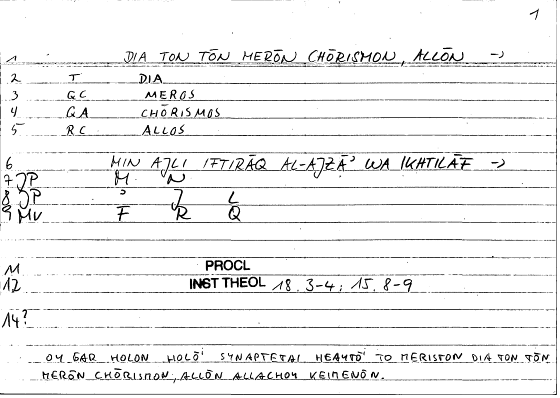 1
1 DIA TON TŌN MERŌN CHŌRISMON, ALLŌN →
2 T DIA
3 GC MEROS
4 GA CHŌRISMOS
5 RC ALLOS
6 MIN AJLI IFTIRĀQ AL-AJZĀʾ WA IKHTILĀF →
7 JP M N
8 JP ʾ J L
9 MV F R Q
11 PROCL
12 INST THEOL 18. 3-4; 15. 8-9
14?
OY GAR HOLON HOLŌⁱ SYNAPTETAI HEAYTŌⁱ TO MERISTON DIA TON TŌN
MERŌN CHŌRISMON, ALLŌN ALLACHOY KEIMENŌN.